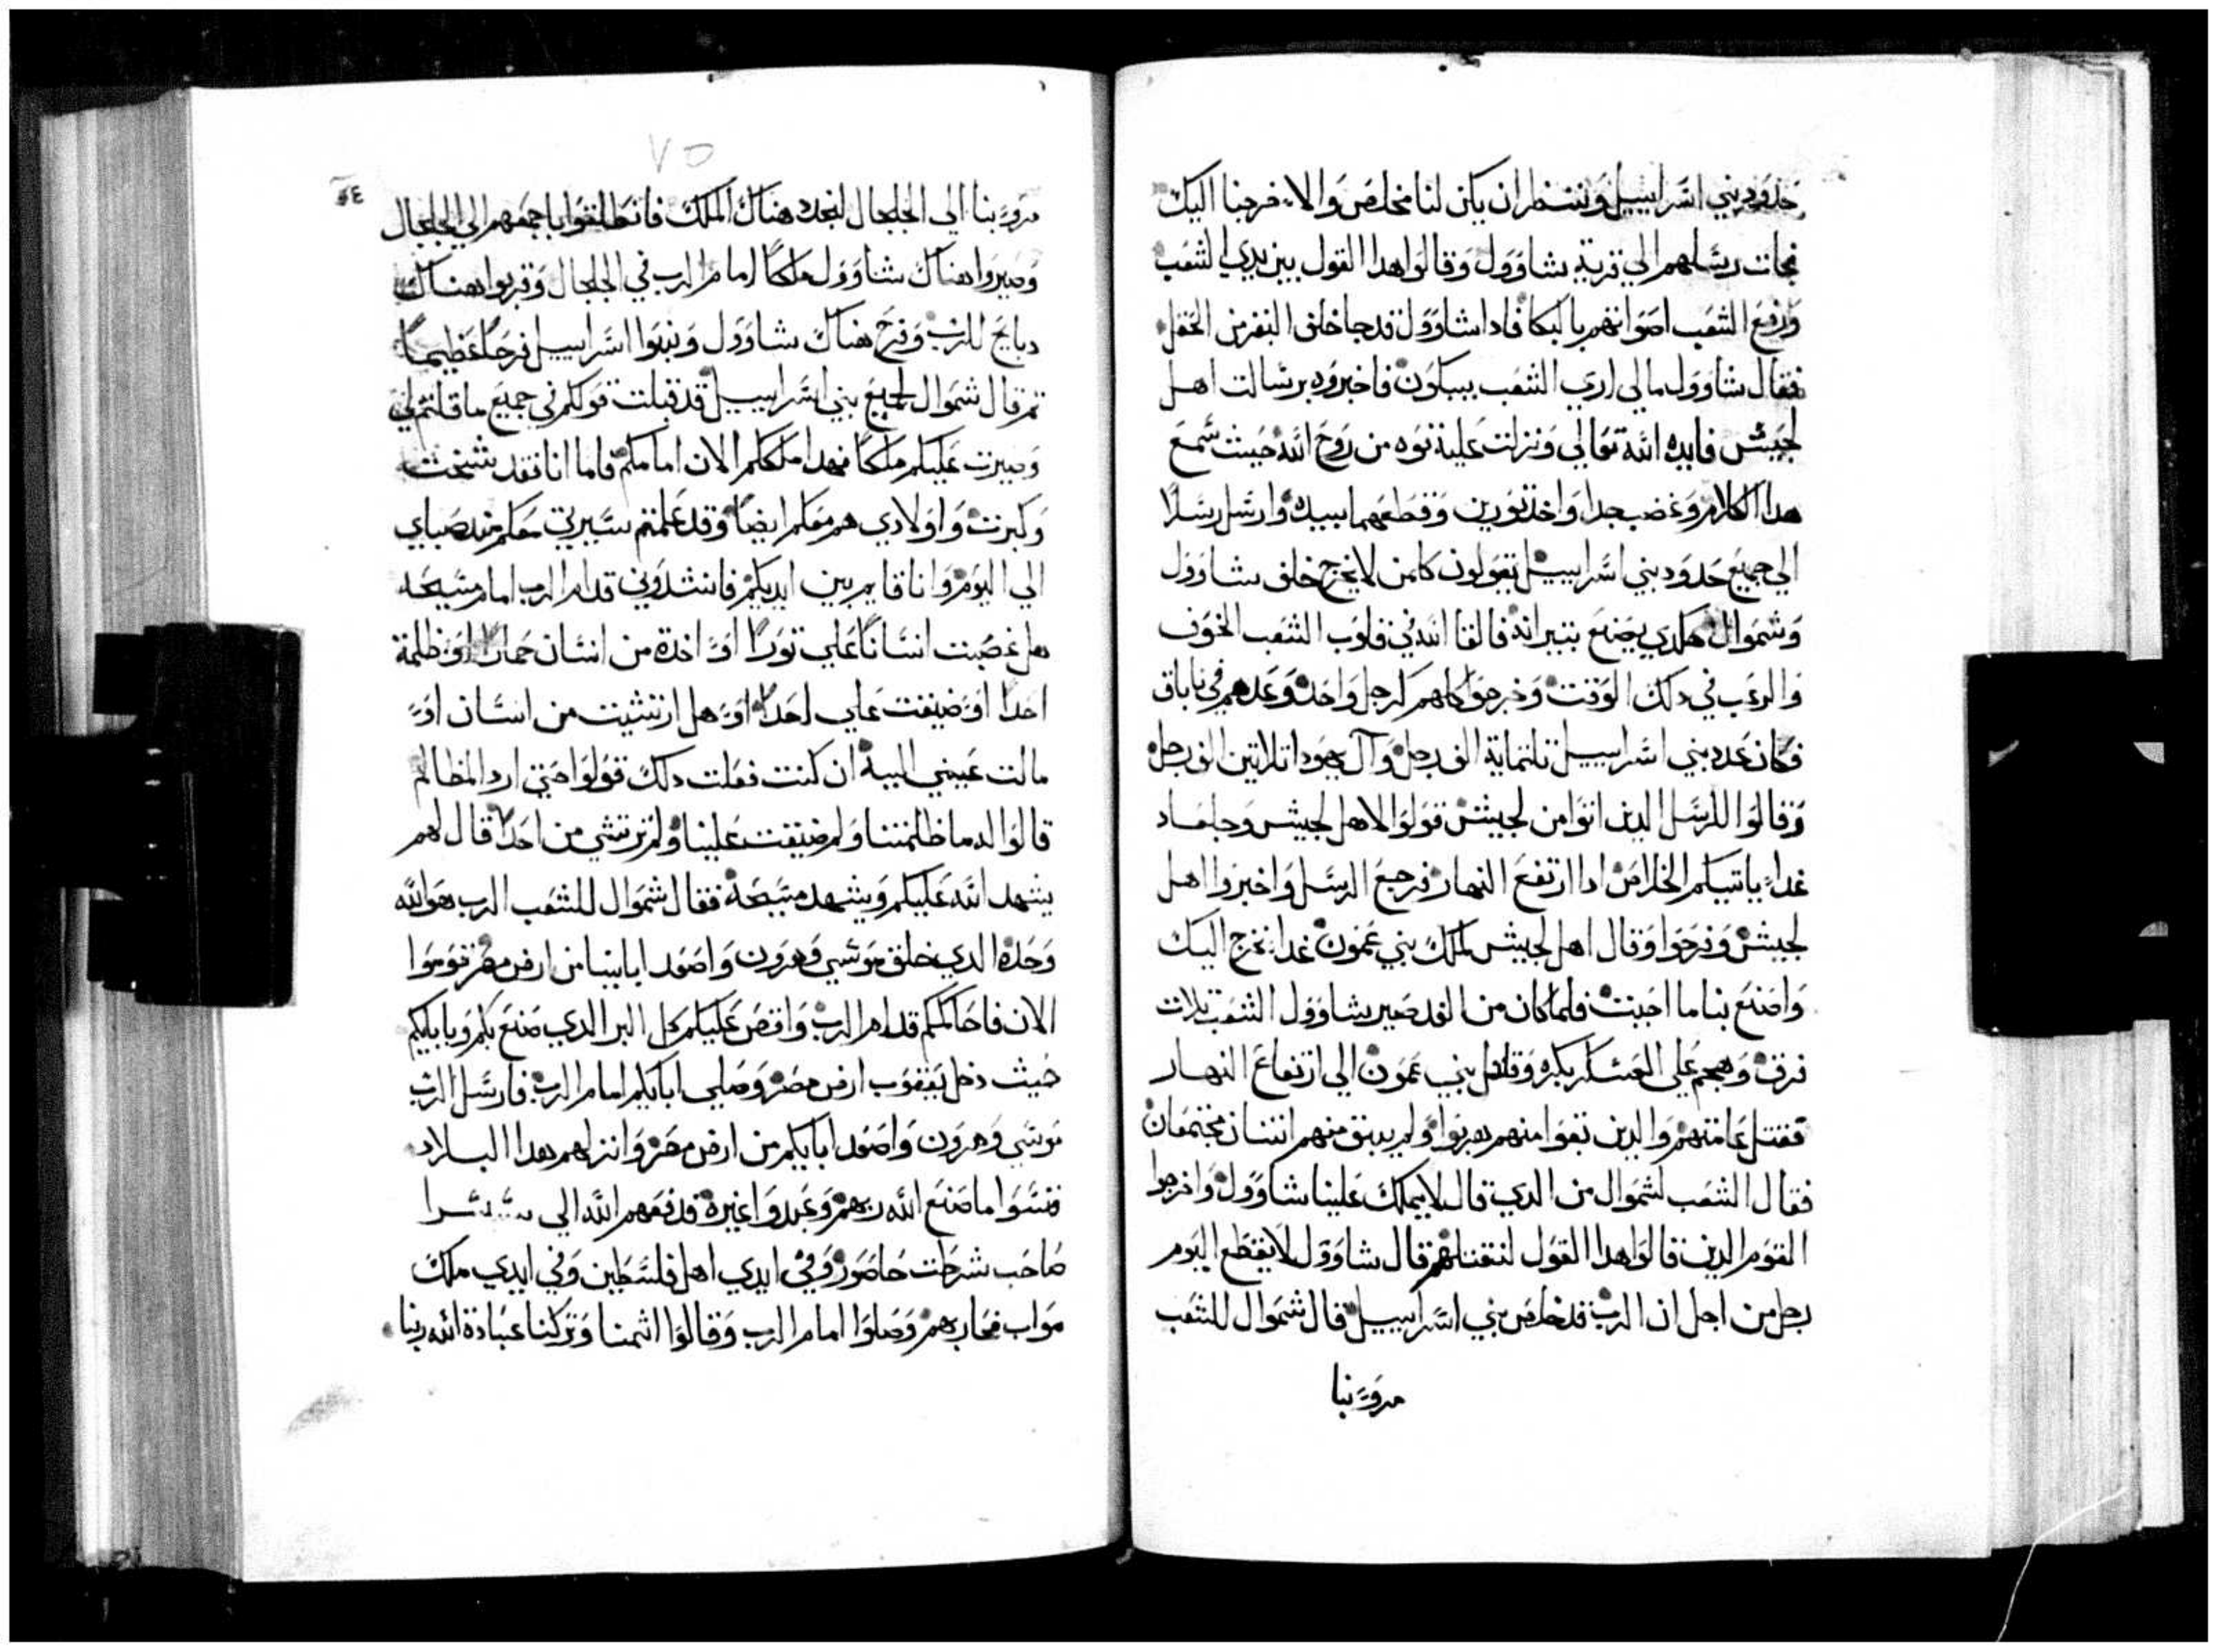 حدود بني اسراييل وننتظر ان يكن لنا مخلص والا خرجنا اليك
فجات رسلهم الي قرية شاوول وقالوا هدا القول بين يدي الشعب
ورفع الشعب اصواتهم بالبكا فادا شاوول قد جا خلف البقر من الحقل
فقال شاوول مالي اري الشعب يبكون فاخبروه برسالت اهل
لجيش فايده الله تعالي ونزلت عليه قوه من روح الله حيث سمع
هدا الكلام وغضب جدا واخد تورين وقطعهما بيده وارسل رسلا
الي جميع حدود بني اسراييل يقولون كلمن لا يخرج خلف شاوول
وشموال هكدي يصنع بتيرانه فالقا الله في قلوب الشعب الخوف
والرعب في دلك الوقت وخرجوا كلهم كرجل واحد وعدهم في باباق
فكان عدد بني اسراييل تلتماية الف رجل وآل يهودا تلاتين الف رجل
وقالوا للرسل الدين اتوا من لجيش قولوا لاهل لجيش وجلعاد
غداً ياتيكم الخلاص ادا ارتفع النهار فرجع الرسل واخبروا اهل
لجيش وفرحوا وقال اهل لجيش لملك بني عمون غدا نخرج اليك
واصنع بنا ما احببت فلما كان من الغد صير شاوول الشعب تلات
فرق وهجم علي العسكر بكره وقاتل بني عمون الي ارتفاع النهار
فقتل عامتهم والدين بقوا منهم هربوا ولم يبق منهم اتنان مجتمعان
فقال الشعب لشموال من الدي قال لا يملك علينا شاوول واخرجوا
القوم الدين قالوا هدا القول لنقتلهم قال شاوول لا يقطع اليوم
رجل من اجل ان الرب قد خلص بني اسراييل قال شموال للشعب
مروّ بنا
٧٥
مروّ بنا الي الجلجال لنجدد هناك الملك فانطلقوا باجمعهم الي الجلجال
وصيروا هناك شاوول ملكاً امام الرب في الجلجال وقربوا هناك
دبايح للرب وفرح هناك شاوول وبنوا اسراييل فرحاً عظيماً
تم قال شموال لجميع بني اسراييل قد قبلت قولكم في جميع ما قلتم لي
وصيرت عليكم ملكاً فهدا ملككم الان امامكم فاما انا فقد شخت
وكبرت واولادي هم معكم ايضاً وقد علمتم سيرتي معكم مند صباي
الي اليوم وانا قايم بين ايديكم فانشدوني قدام الرب امام مسيحه
هل غصبت انساناً علي توراً اوّ اخدة من انسان حماراً اوّ ظلمة
احداً اوّ ضيقت علي احداً اوّ هل ارتشيت من انسان اوّ
مالت عيني اليه ان كنت فعلت دلك قولوا حتي ارد المظالم
قالوا له ما ظلمتنا ولم ضيقت علينا ولم ترتشي من احداً قال لهم
يشهد الله عليكم ويشهد مسيحه فقال شموال للشعب الرب هو الله
وحده الدي خلق موسي وهرون واصعد اباينا من ارض مصر قوموا
الان فاحاكمكم قدام الرب واقص عليكم كل البر الدي صنع بكم وبابايكم
حيث دخل يعقوب ارض مصر وصلي ابايكم امام الرب فارسل الرب
موسي وهرون واصعد ابايكم من ارض مصر وانزلهم هدا البلاد
فنسوا ما صنع الله ربهم وعبدوا غيره فدفعهم الله الي سيسرا
صاحب شرطت حاصور وفي ايدي اهل فلسطين وفي ايدي ملك
مواب فحاربهم وصلوا امام الرب وقالوا اتمنا وتركنا عبادة الله ربنا